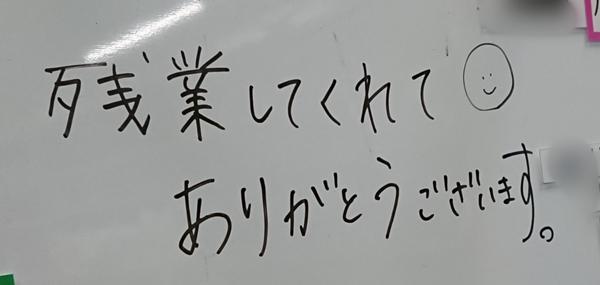 残業してくれて
ありがとうございます。